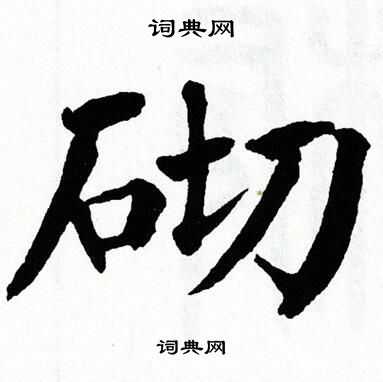 词典网
砌
词典网